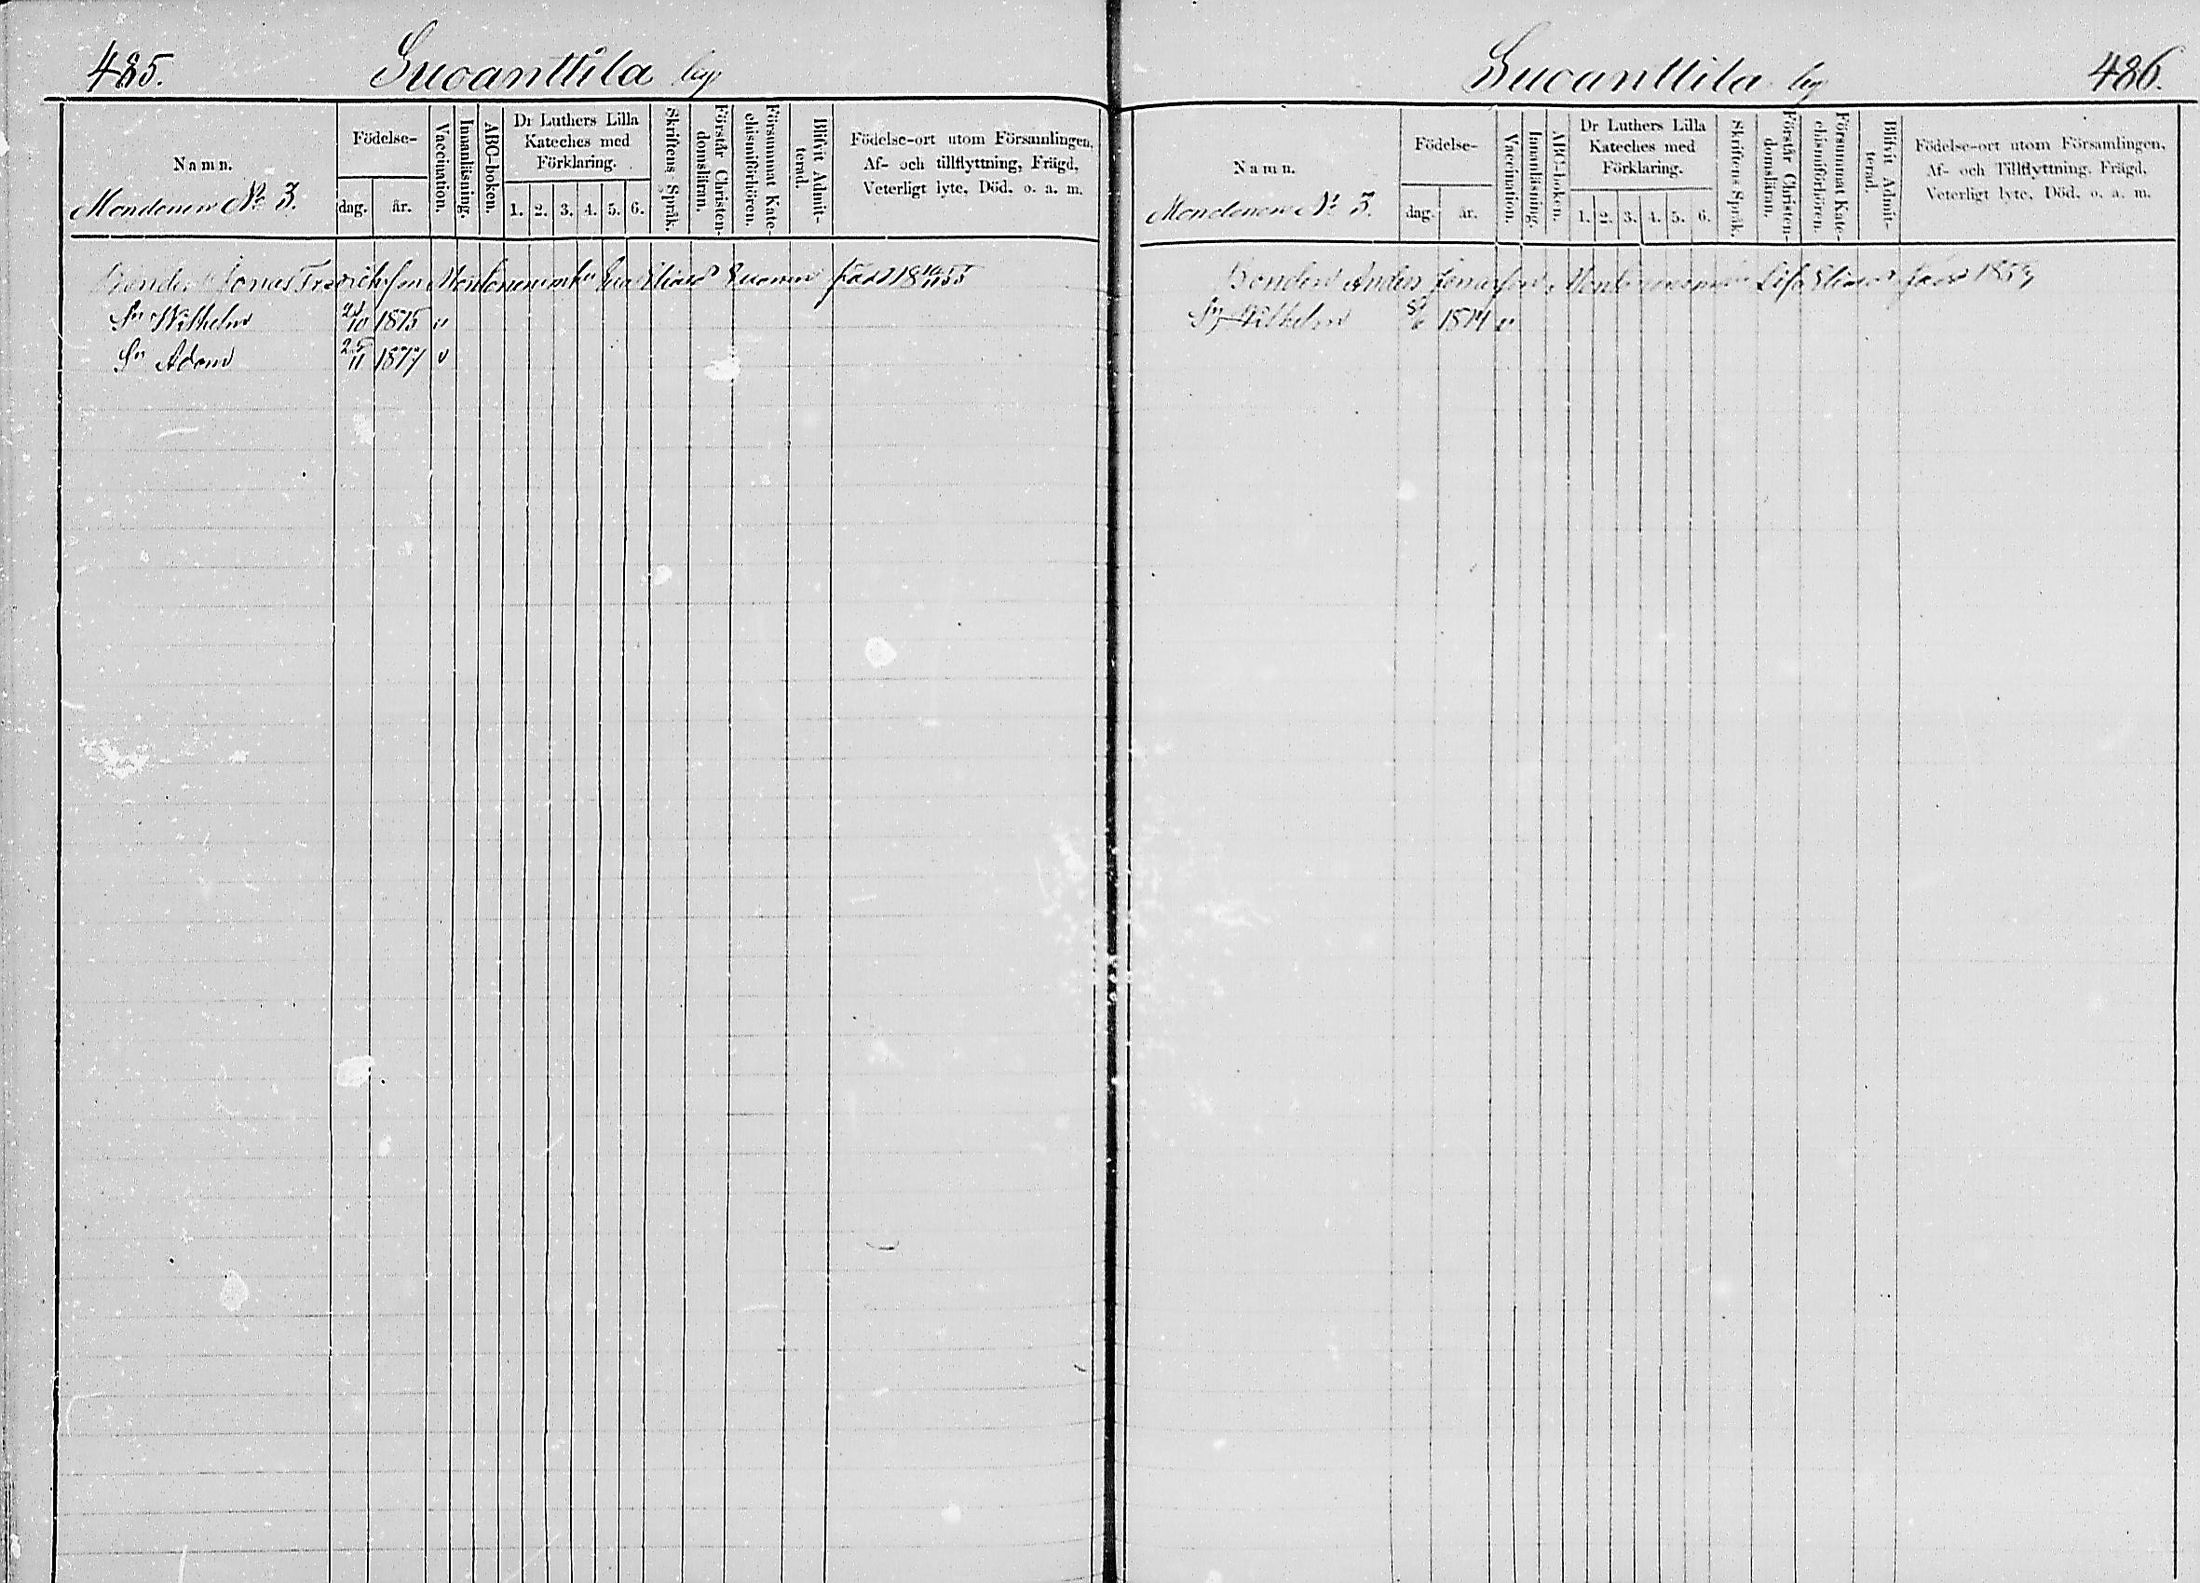 485.
Suoanttila by
Namn.
Mondonen No 3.
Födelse-
dag.
år.
Vaccination.
Innanläsning.
ABC-boken.
Dr Luthers Lilla
Kateches med
Förklaring.
1. 2. 3. 4. 5. 6.
Skriftens Språk.
Förstår Christen-
domsläran.
Försummat Kate-
chismiförhören.
Blifvit Admit-
terad.
Födelse-ort utom Församlingen,
Af- och tillflyttning, Frägd,
Veterligt lyte, Död, o. a. m.
Bonden Jonas
Sn Wilhelm 1875 v
Sn Adam 25/11 1877 v
Suoanttila by
486.
Namn.
Mondonen No 3.
Födelse-
dag.
år.
Vaccination.
Innanläsning.
ABC-boken.
Dr Luthers Lilla
Kateches med
Förklaring.
1. 2. 3. 4. 5. 6.
Skriftens Språk.
Förstår Christen-
domsläran.
Försummat Kate-
chismiförhören.
Blifvit Admit-
terad.
Födelse-ort utom Församlingen,
Af- och Tillflyttning, Frägd,
Veterligt lyte, Död, o. a. m.
Bonden Anders
Sn Wilhelm 1874 v